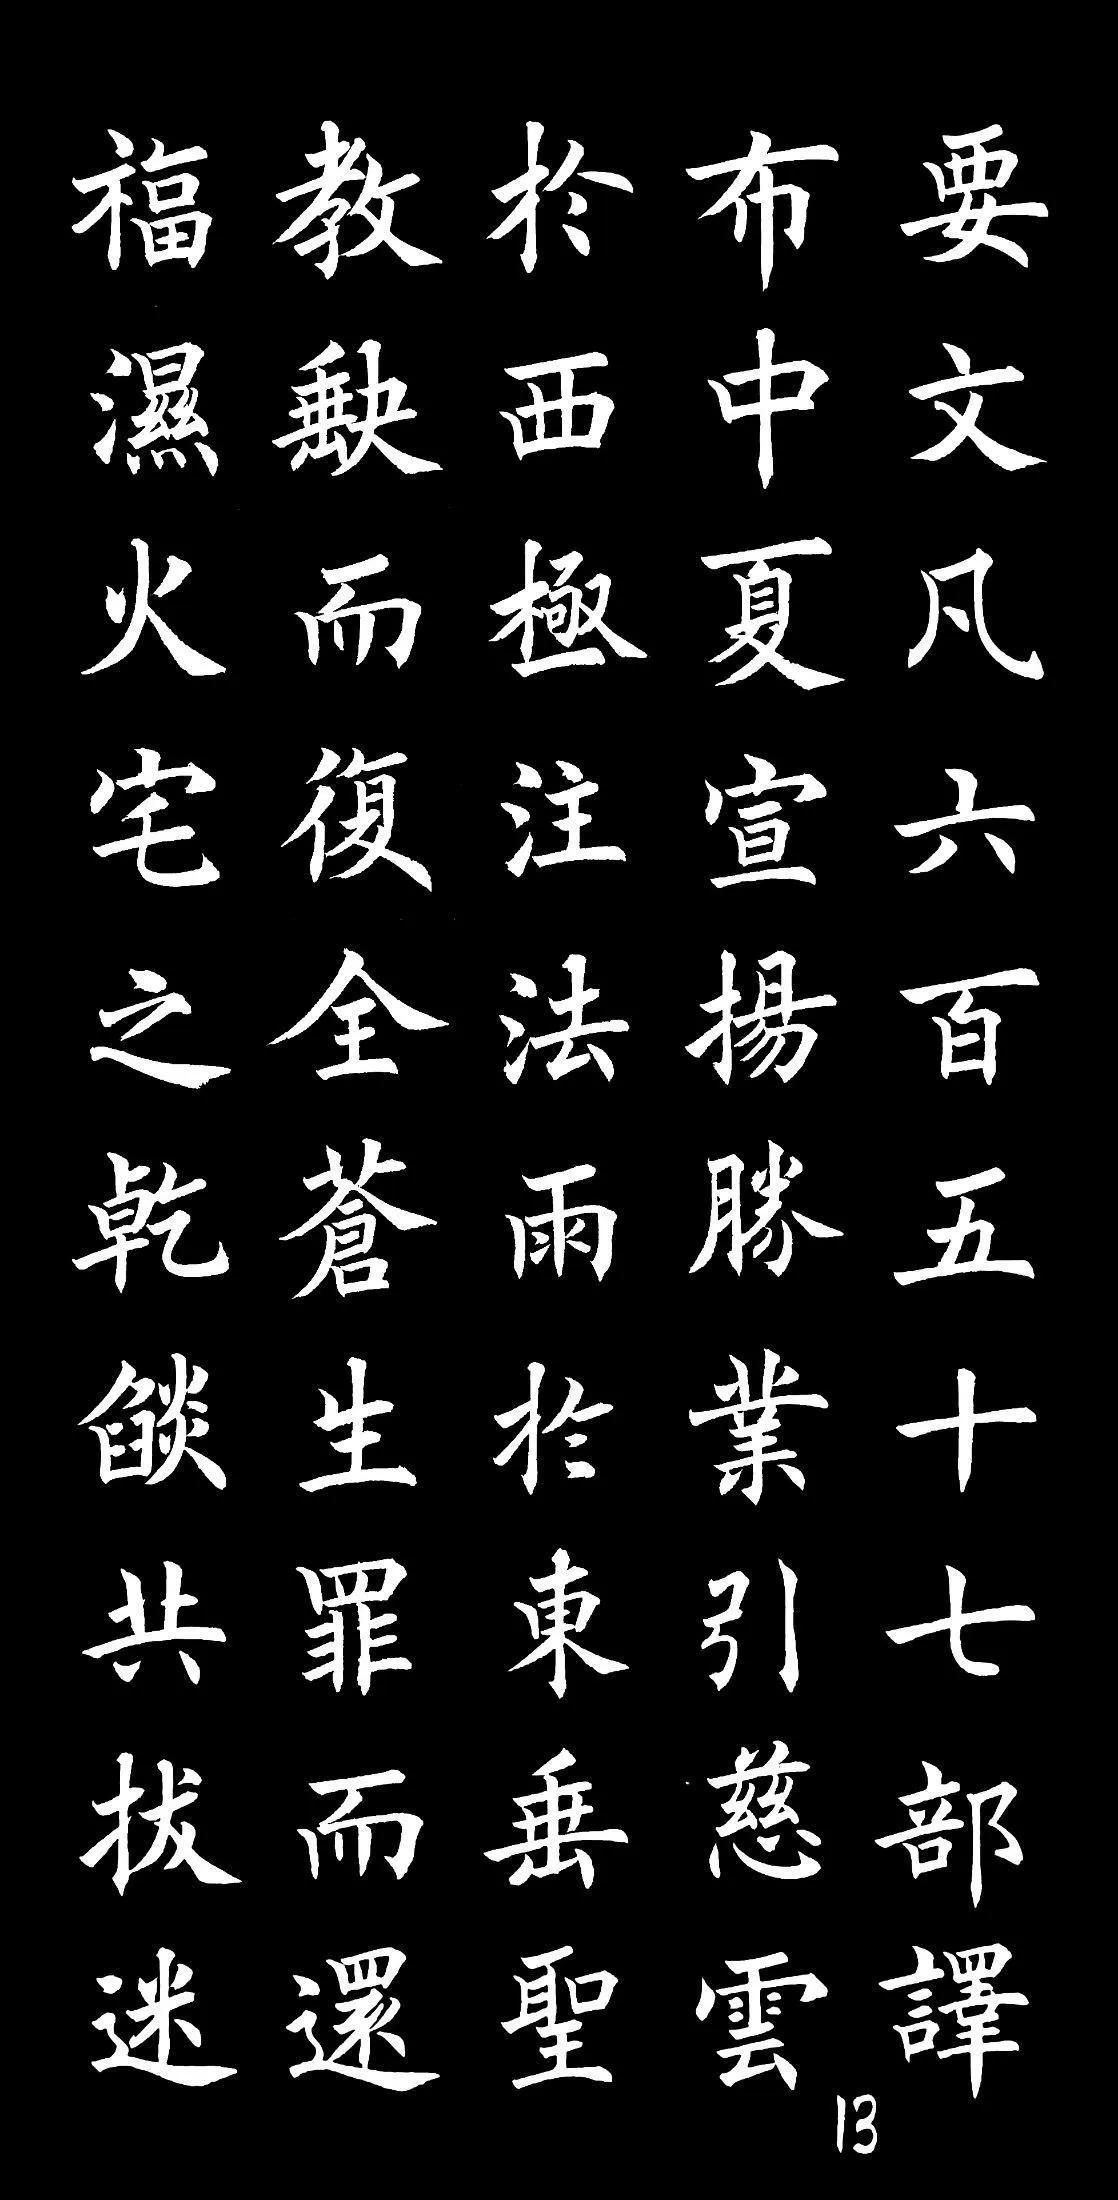 要文凡六百五十七部譯
布中夏宣揚勝業引慈雲
於西極注法雨於東垂聖
教缺而復全蒼生罪而還
福濕火宅之乾燄共拔迷
13